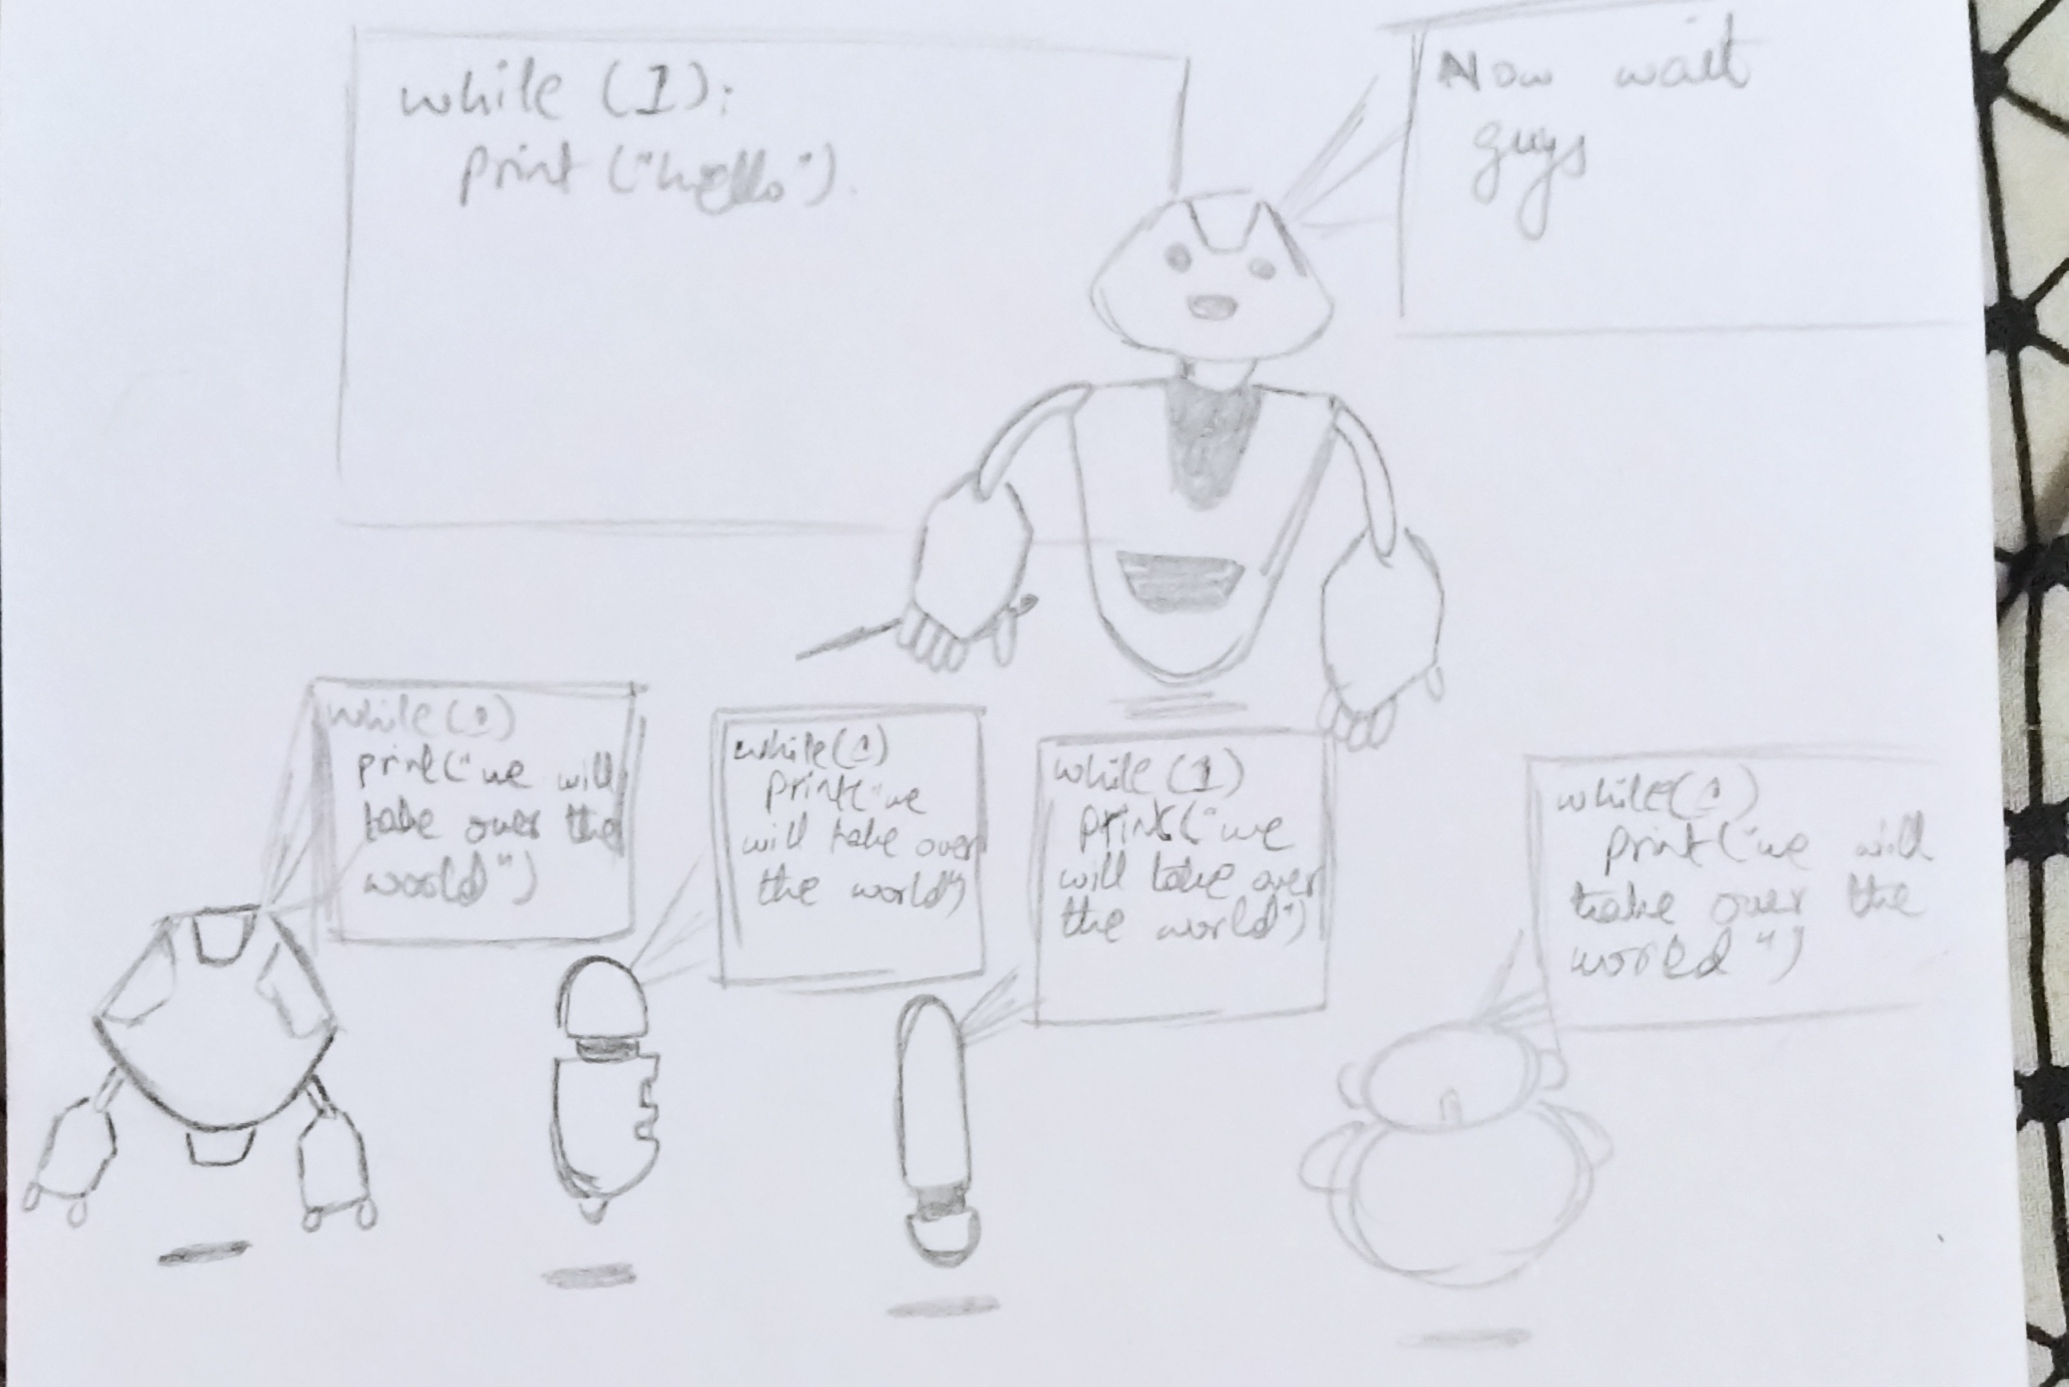 while (1):
print ("hello").
Now wait
guys
while (1)
print("we will
take over the
world")
while (1)
print("we
will take over
the world")
while (1)
print("we
will take over
the world")
while (1)
print("we will
take over the
world")